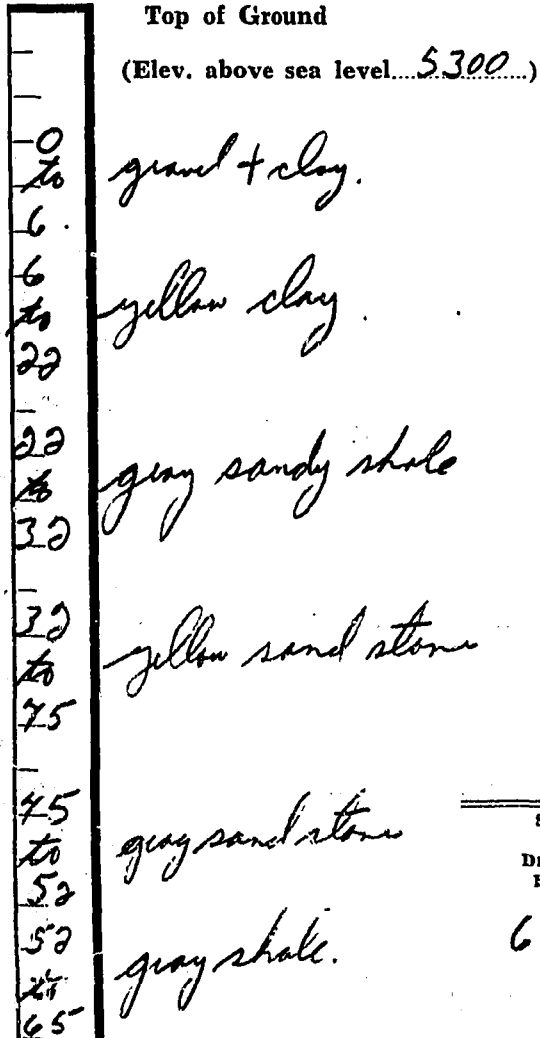 Top of Ground
(Elev. above sea level....5300....)
0
to gravel + clay.
6.
6
to yellow clay.
22
22
to gray sandy shale
32
32
to yellow sand stone
45
45
to gray sand stone
52
52 gray shale. 6
to
65